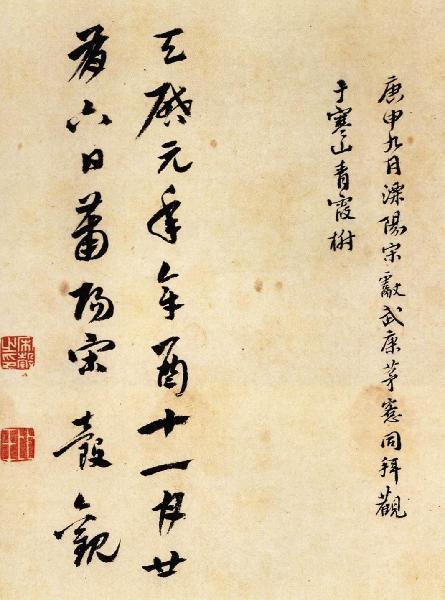 庚申九月溧陽宋獻武康茅窓同拜觀
于寒山青霞榭
天啟元年辛酉十一月廿
有六日莆陽宋瑴觀